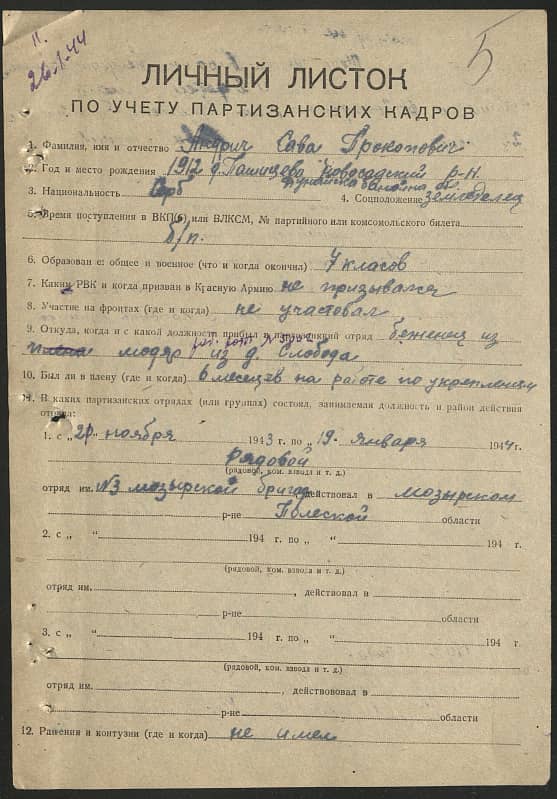 26-1-44
5
ЛИЧНЫЙ ЛИСТОК
ПО УЧЕТУ ПАРТИЗАНСКИХ КАДРОВ
1. Фамилия, имя и отчество Андрич Сава Прокопович
2. Год и место рождения 1912 д. Пашицево Новосадский р-н.
Дунайска бановина
3. Национальность Серб 4. Соцположение земледелец
5. Время поступления в ВКП(б) или ВЛКСМ, № партийного или комсомольского билета
б/п.
6. Образование: общее и военное (что и когда окончил) 7 класов
7. Каким РВК и когда призван в Красную Армию не призывался
8. Участие на фронтах (где и когда) не участвовал
9. Откуда, когда и с какой должности прибыл в партизанский отряд беженец из
модяр из д. Слобода
10. Был ли в плену (где и когда) 6 месяцев на работе по укреплении
11. В каких партизанских отрядах (или группах) состоял, занимаемая должность и район действия
отряда:
1. с „21" ноября 1943 г. по „19" января 1944 г.
Рядовой
(рядовой, ком. взвода и т. д.)
отряд им. №3 мозырской бригад действовал в мозырском
р-не Полеской области
2. с „ " 194 г. по „ " 194 г.
(рядовой, ком. взвода и т. д.)
отряд им. , действовал в
р-не области
3. с „ " 194 г. по „ " 194 г.
(рядовой, ком. взвода и т. д.)
отряд им. , действововал в
р-не области
12. Ранения и контузии (где и когда) не имел